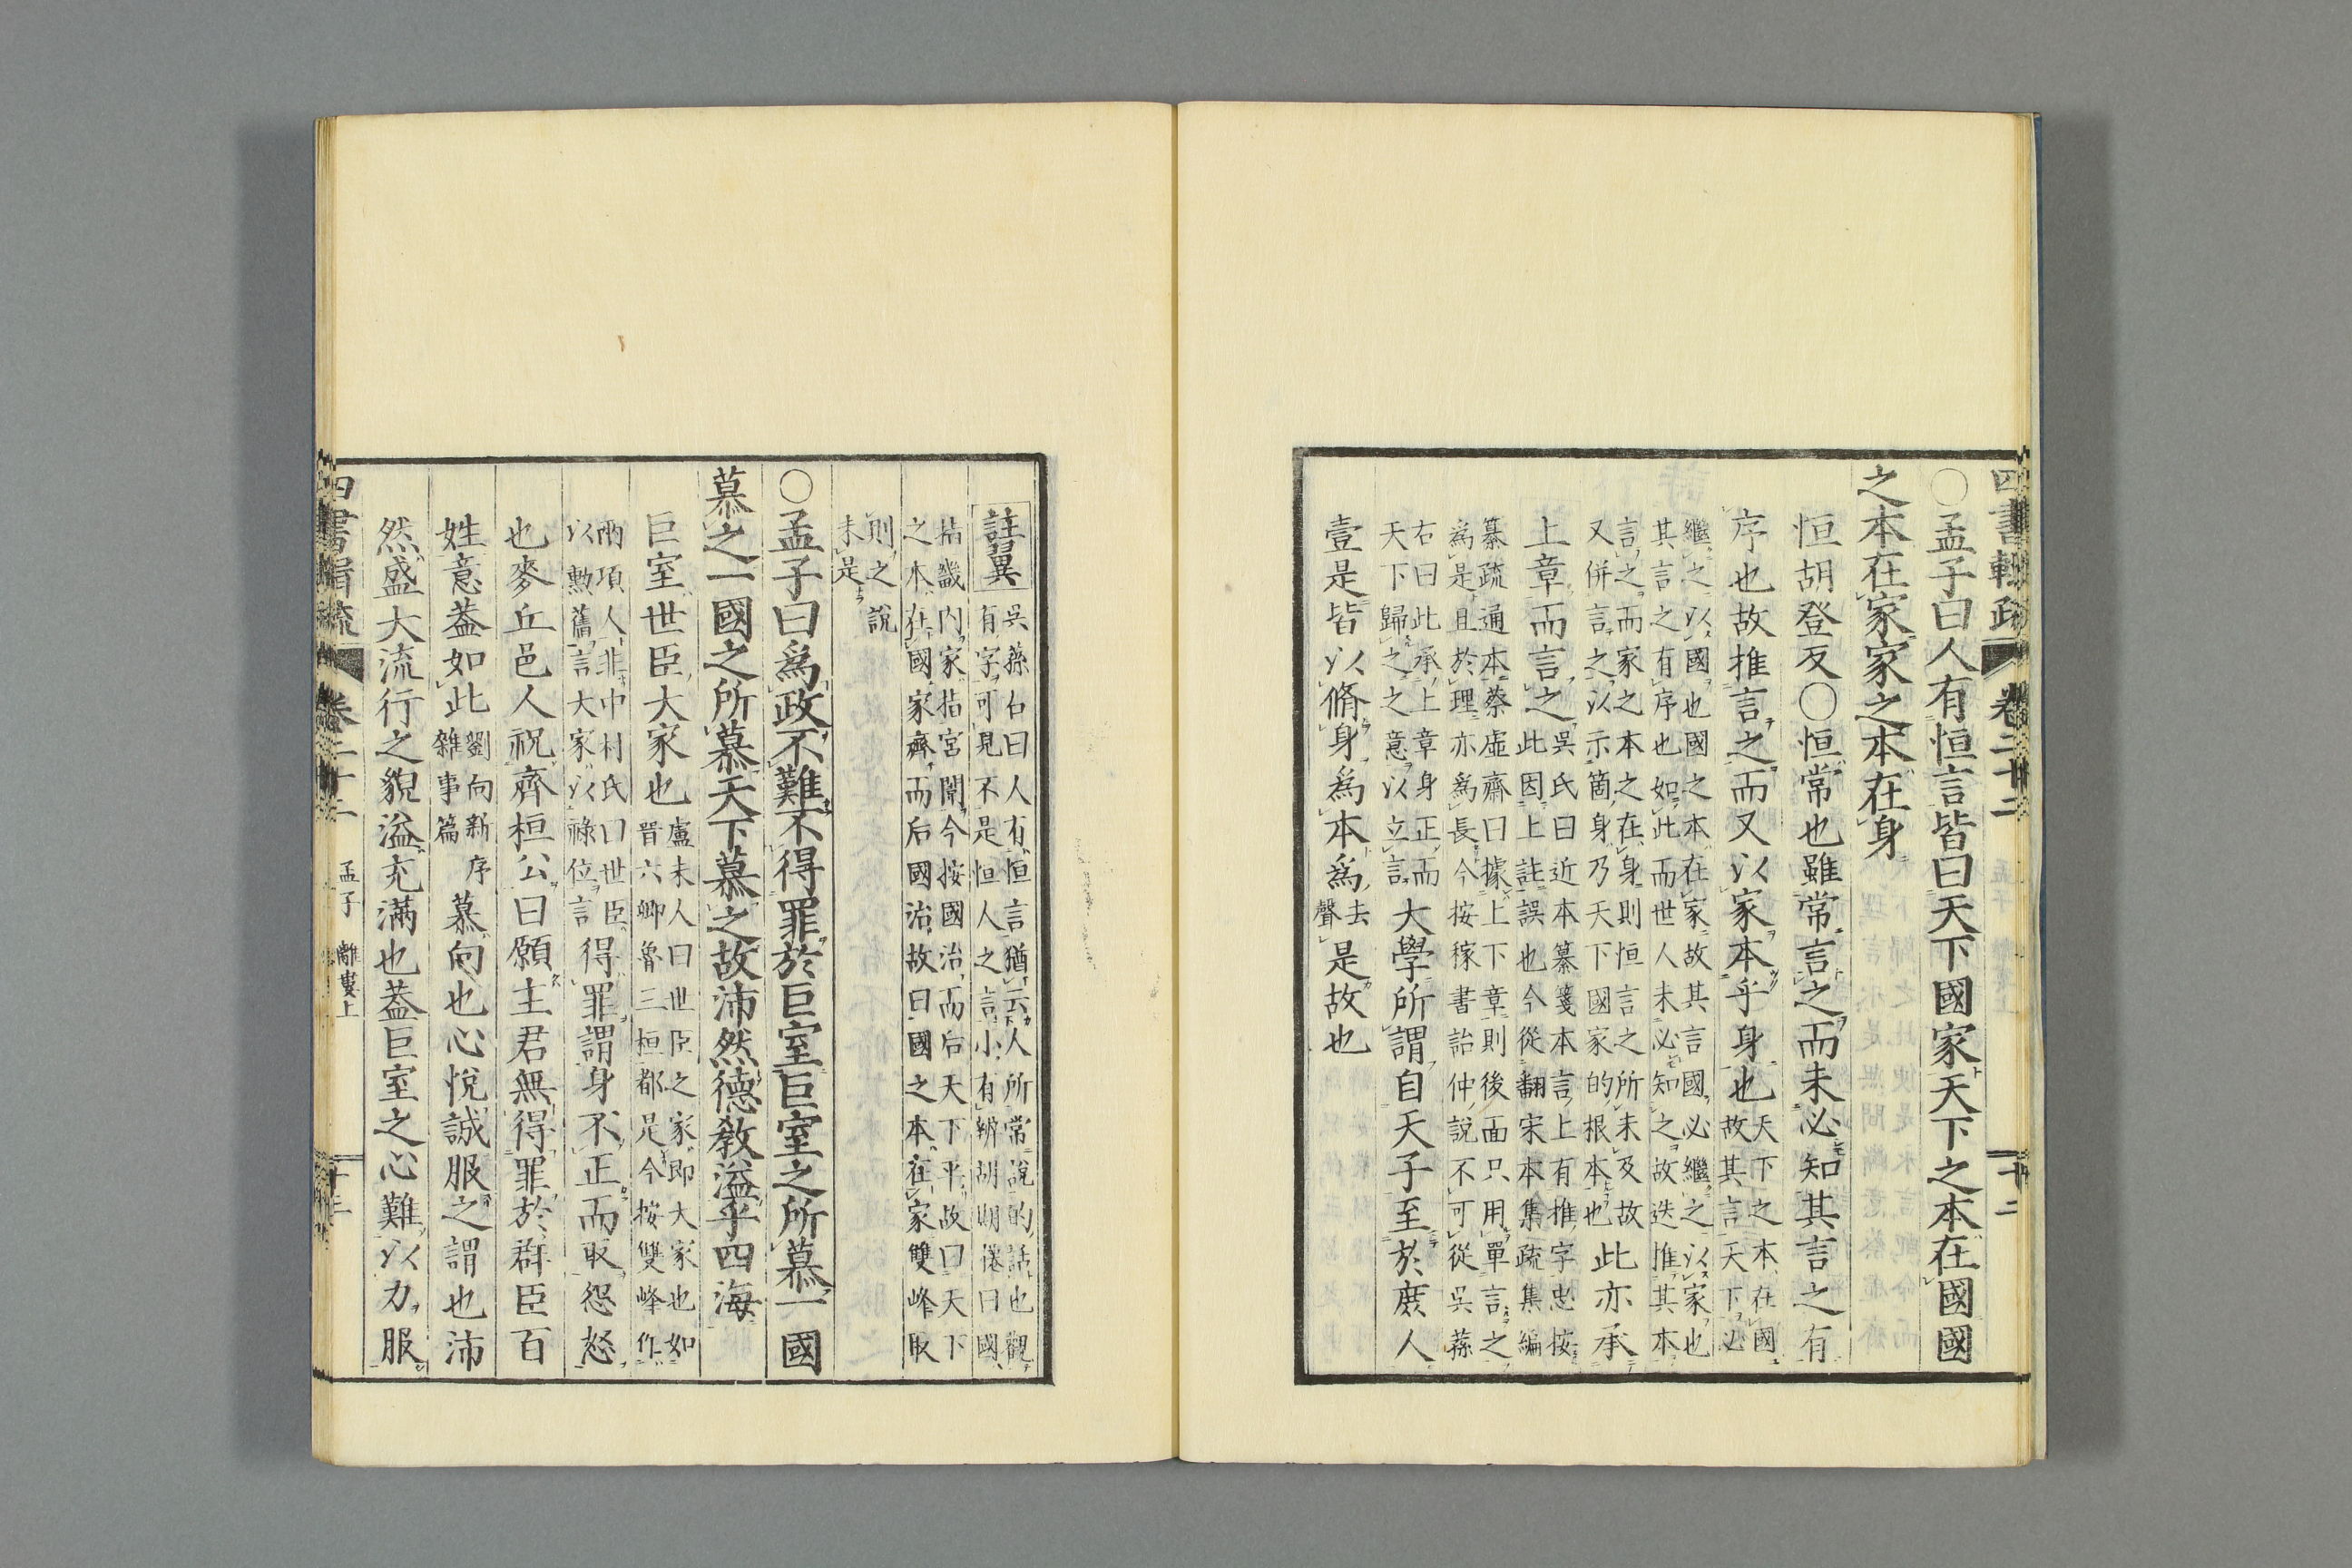 四書輯疏 卷二十二 十二
〇孟子曰人有恒言皆曰天下國家天下之本在國國
之本在家家之本在身
恒胡登反〇恒常也雖常言之而未必知其言之有
序也故推言之而又以家本乎身也天下之本在國故其言天下必
繼之以國也國之本在家故其言國必繼之以家也
其言之有序也如此而世人未必知之故迭推其本
言之而家之本之在身則恒言之所未及故
又併言之以示箇身乃天下國家的根本也此亦承
上章而言之吳氏曰近本纂箋本言上有推字忠按
此因上註誤也今從翻宋本集疏集編
纂疏通本蔡虛齋曰據上下章則後面只用單言之
爲是且於理亦爲長今按稼書詒仲說不可從吳蓀
右曰此承上章身正而
天下歸之之意以立言大學所謂自天子至於庶人
壹是皆以脩身爲本爲去聲是故也
註翼吳蓀右曰人有恒言猶云人所常說的話也觀
有字可見不是恒人之言小有辨胡期僊曰國
指畿內家指宮閫今按國治而后天下平故曰天下
之本在國家齊而后國治故曰國之本在家雙峰取
則之說
未是
〇孟子曰爲政不難不得罪於巨室巨室之所慕一國
慕之一國之所慕天下慕之故沛然德敎溢乎四海
巨室世臣大家也盧未人曰世臣之家即大家也如
晋六卿魯三桓都是今按雙峰作
兩項人非中村氏曰世臣
以勲舊言大家以祿位言得罪謂身不正而取怨怒
也麥丘邑人祝齊桓公曰願主君無得罪於群臣百
姓意葢如此劉向新序雜事篇慕向也心悅誠服之謂也沛
然盛大流行之貌溢充滿也葢巨室之心難以力服
四書輯疏 卷二十二 孟子 離婁上 十三